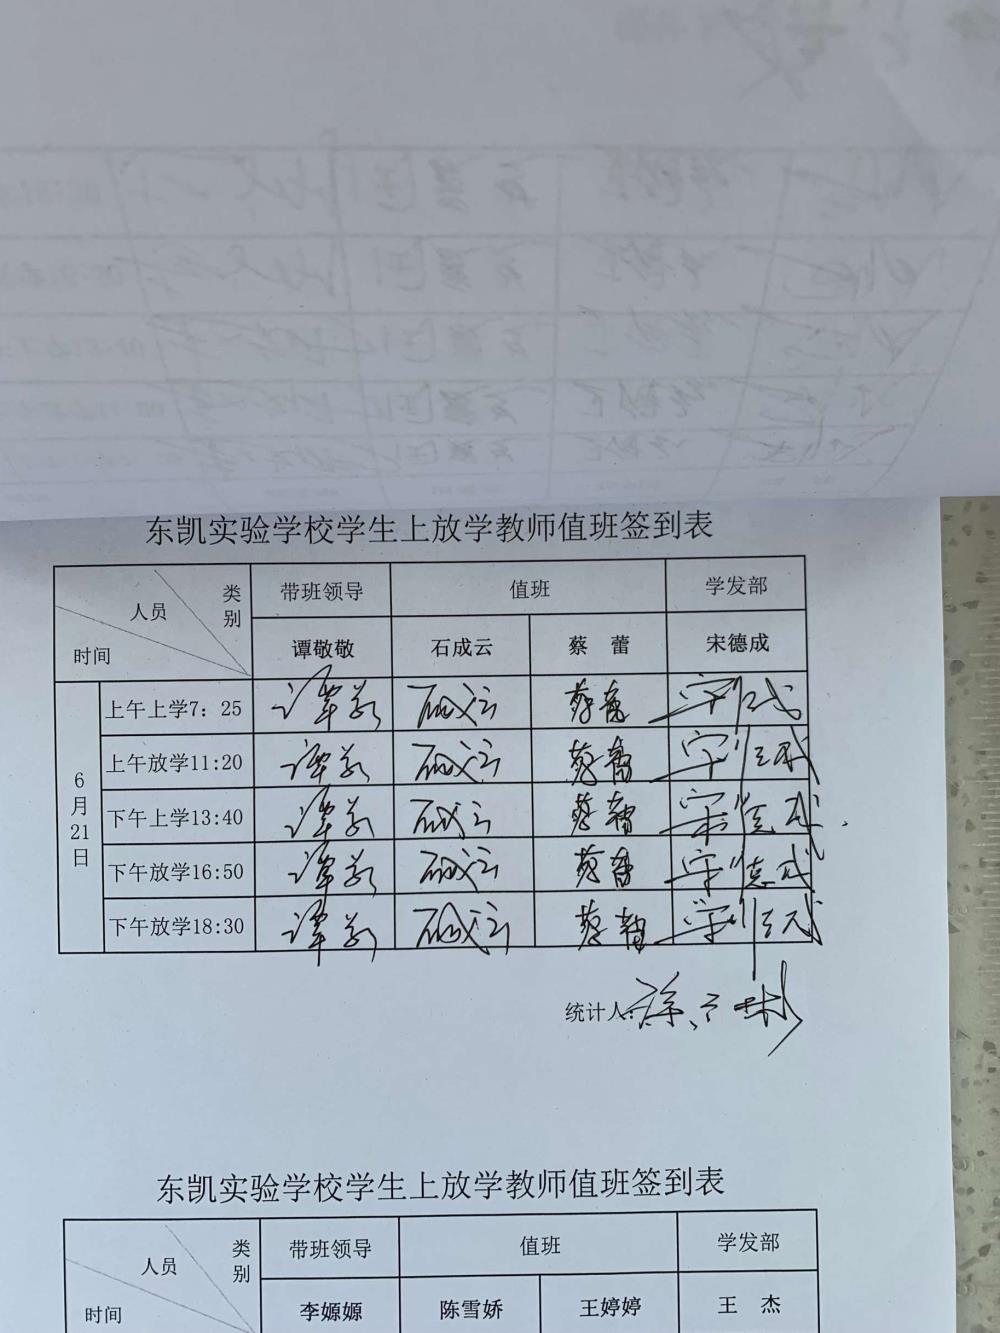 东凯实验学校学生上放学教师值班签到表
类别 人员 时间 带班领导 值班 学发部
谭敬敬 石成云 蔡 蕾 宋德成
6月21日
上午上学7: 25 谭敬 石成云 蔡蕾 宋德成
上午放学11:20 谭敬 石成云 蔡蕾 宋德成
下午上学13:40 谭敬 石成云 蔡蕾 宋德成
下午放学16:50 谭敬 石成云 蔡蕾 宋德成
下午放学18:30 谭敬 石成云 蔡蕾 宋德成
统计人:
东凯实验学校学生上放学教师值班签到表
类别 人员 时间 带班领导 值班 学发部
李嫄嫄 陈雪娇 王婷婷 王 杰